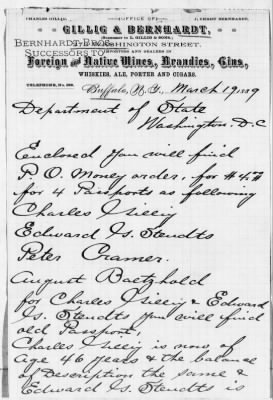 CHARLES GILLIG. OFFICE OF J. EMORY BERNHARDT.
GILLIG & BERNHARDT,
(Successors to L. GILLIG & SONS,)
Bernhardt Bros.
WASHINGTON STREET,
Successors to
IMPORTERS AND DEALERS IN
Foreign and Native Wines, Brandies, Gins,
WHISKIES, ALE, PORTER AND CIGARS.
TELEPHONE, No.
Buffalo, N. Y., March 19, 1889
Department of State
Washington, D.C
Enclosed You will find
P. O. Money order, for $4.
for 4 Passports as following
Charles Gillig
Edward Is. Steudts
Peter Cramer.
August Baetzhold
for Charles Gillig & Edward
Is. Steudts You will find
old Passport,
Charles Gillig is now of
Age 46 Years & the balance
of Description the same &
Edward Is. Steudts is